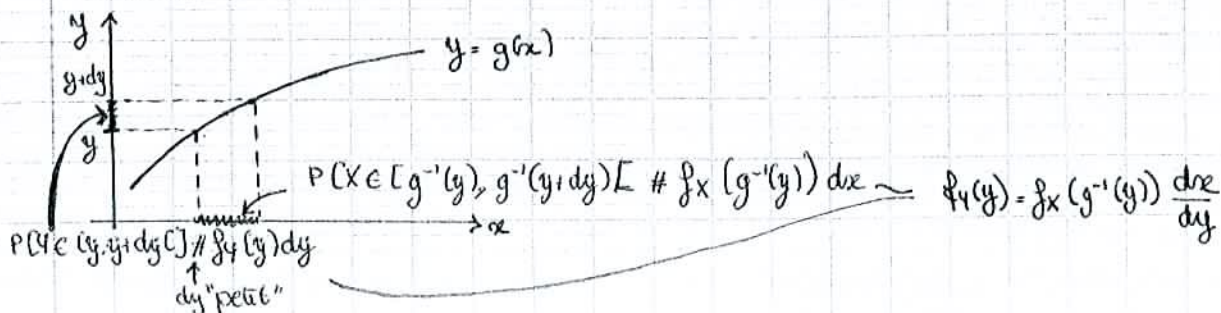 y
y = g(x)
y+dy
y
P[X ∈ [g⁻¹(y), g⁻¹(y+dy)[ # f_X (g⁻¹(y)) dx ~ f_Y(y) = f_X (g⁻¹(y)) dx/dy
x
P[Y ∈ [y, y+dy[] # f_Y(y)dy
dy "petit"